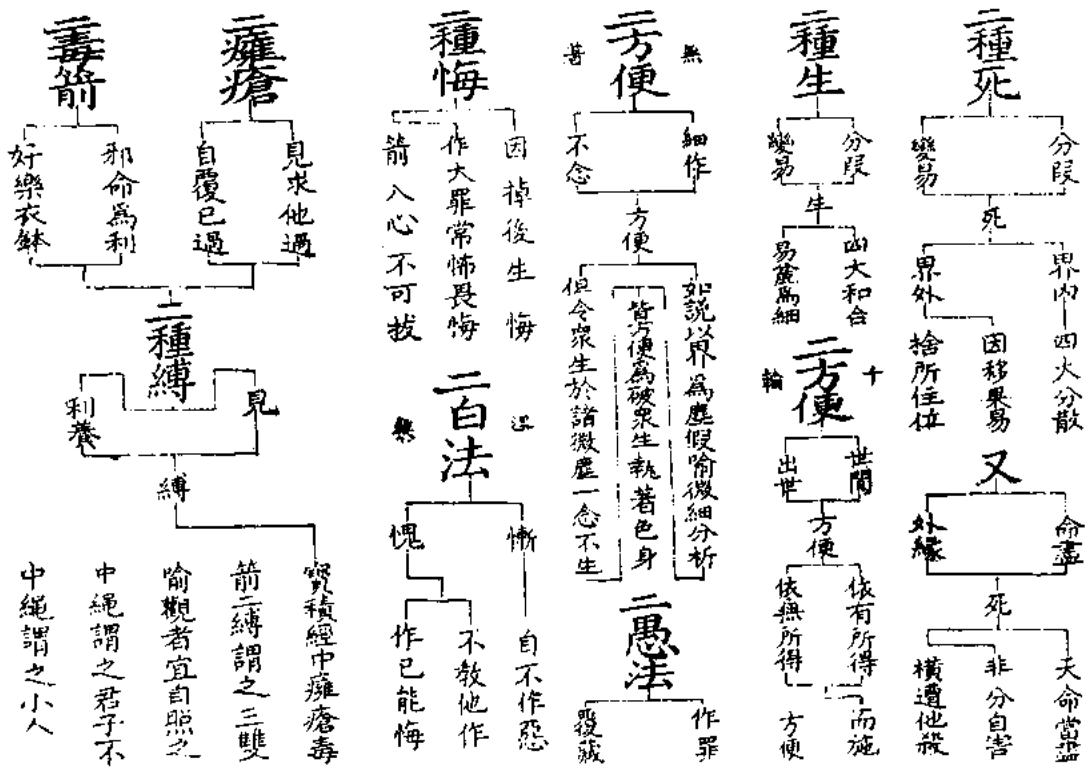 二種死
分段
變易
死
界內
四大分散
界外
因移果易
捨所住位
又
命盡
外緣
死
天命當盡
非分自害
橫遭他殺
二種生
分段
變易
生
四大和合
易麄爲細
十
二方便
輪
世間
出世
方便
依有所得
依無所得
而施
方便
無
二方便
著
細作
不念
方便
如說以界爲塵假喻微細分析
皆方便爲破衆生執著色身
但令衆生於諸微塵一念不生
二愚法
作罪
覆藏
二種悔
因掉後生悔
作大罪常怖畏悔
箭入心不可拔
二白法
無
慚
愧
自不作惡
不教他作
作已能悔
二癰瘡
見求他過
自覆已過
二毒箭
邪命爲利
好樂衣鉢
二種縛
見
利養
縛
寶積經中癰瘡毒
箭二縛謂之三雙
喻觀者宜自照之
中繩謂之君子不
中繩謂之小人